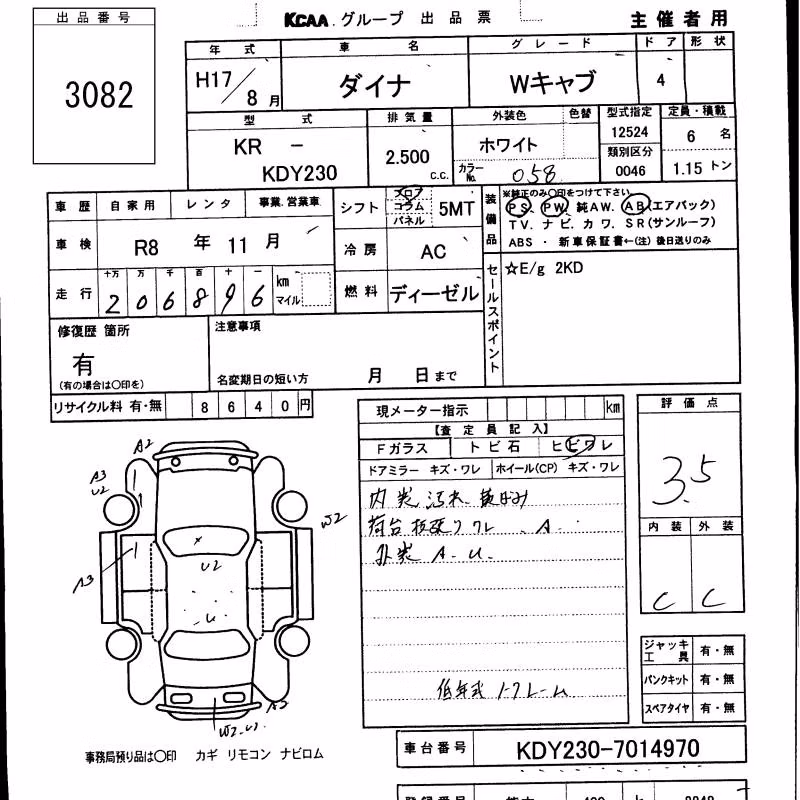 出品番号
3082
KCAA グループ 出品票
主催者用
年式 車名 グレード ドア 形状
H17/8月 ダイナ Wキャブ 4
型式 排気量 外装色 色替 型式指定 定員・積載
KR - KDY230
2.500 c.c.
ホワイト
カラーNo. 058
12524
類別区分
0046
6 名
1.15 トン
車歴 自家用 レンタ 事業.営業車
シフト フロア コラム パネル 5MT
装備品
※純正のみ〇印をつけて下さい
PS PW 純AW. AB(エアバッグ)
TV. ナビ. カワ. SR(サンルーフ)
ABS ・ 新車保証書←(注) 後日送りのみ
車検 R8 年 11 月
冷房 AC
走行 十万 万 千 百 十 一
206896 km マイル
燃料 ディーゼル
セールスポイント
☆E/g 2KD
修復歴 箇所
有
(有の場合は〇印を)
注意事項
名変期日の短い方 月 日まで
リサイクル料 有・無 8640円
現メーター指示 km
【査定員記入】
Fガラス トビ石 ヒビワレ
ドアミラー キズ・ワレ ホイール(CP) キズ・ワレ
評価点
3.5
内装 外装
C C
A2
A3
U2
W2
A3
U2
U
A2
W2.U2
内装 汚れ
荷台 ワレ . A.
外装 A. U.
低年式
ジャッキ工具 有・無
パンクキット 有・無
スペアタイヤ 有・無
事務局預り品は〇印 カギ リモコン ナビロム
車台番号 KDY230-7014970